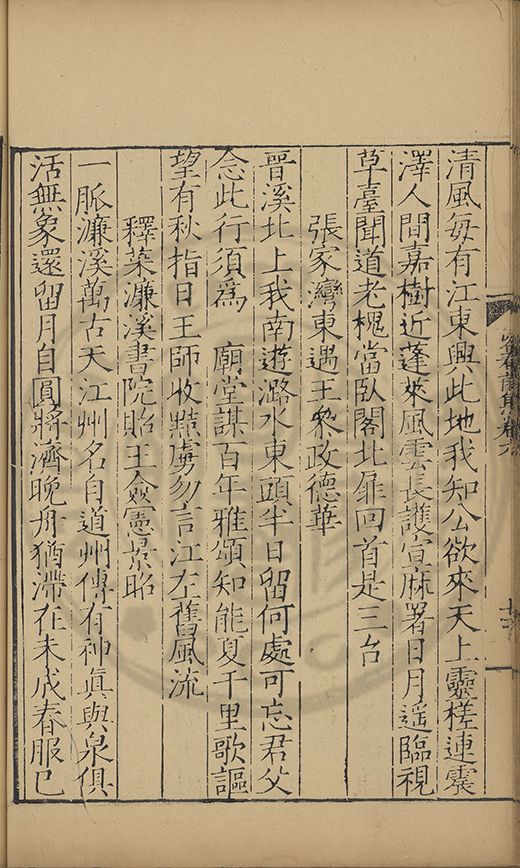 清風每有江東興此地我知公欲來天上靈槎連震
澤人間嘉樹近蓬萊風雲長護宣麻署日月遥臨視
草臺聞道老槐當臥閣北扉回首是三台
張家灣東遇王叅政德華
晉溪北上我南遊潞水東頭半日留何處可忘君父
念此行須爲 廟堂謀百年雅頌知能夏千里歌謳
望有秋指日王師收黠虜勿言江左舊風流
釋菜濂溪書院貽王僉憲景昭
一脈濂溪萬古天江州名自道州傳有神眞與泉俱
活無象還留月自圓將濟晚舟猶滯在未成春服已